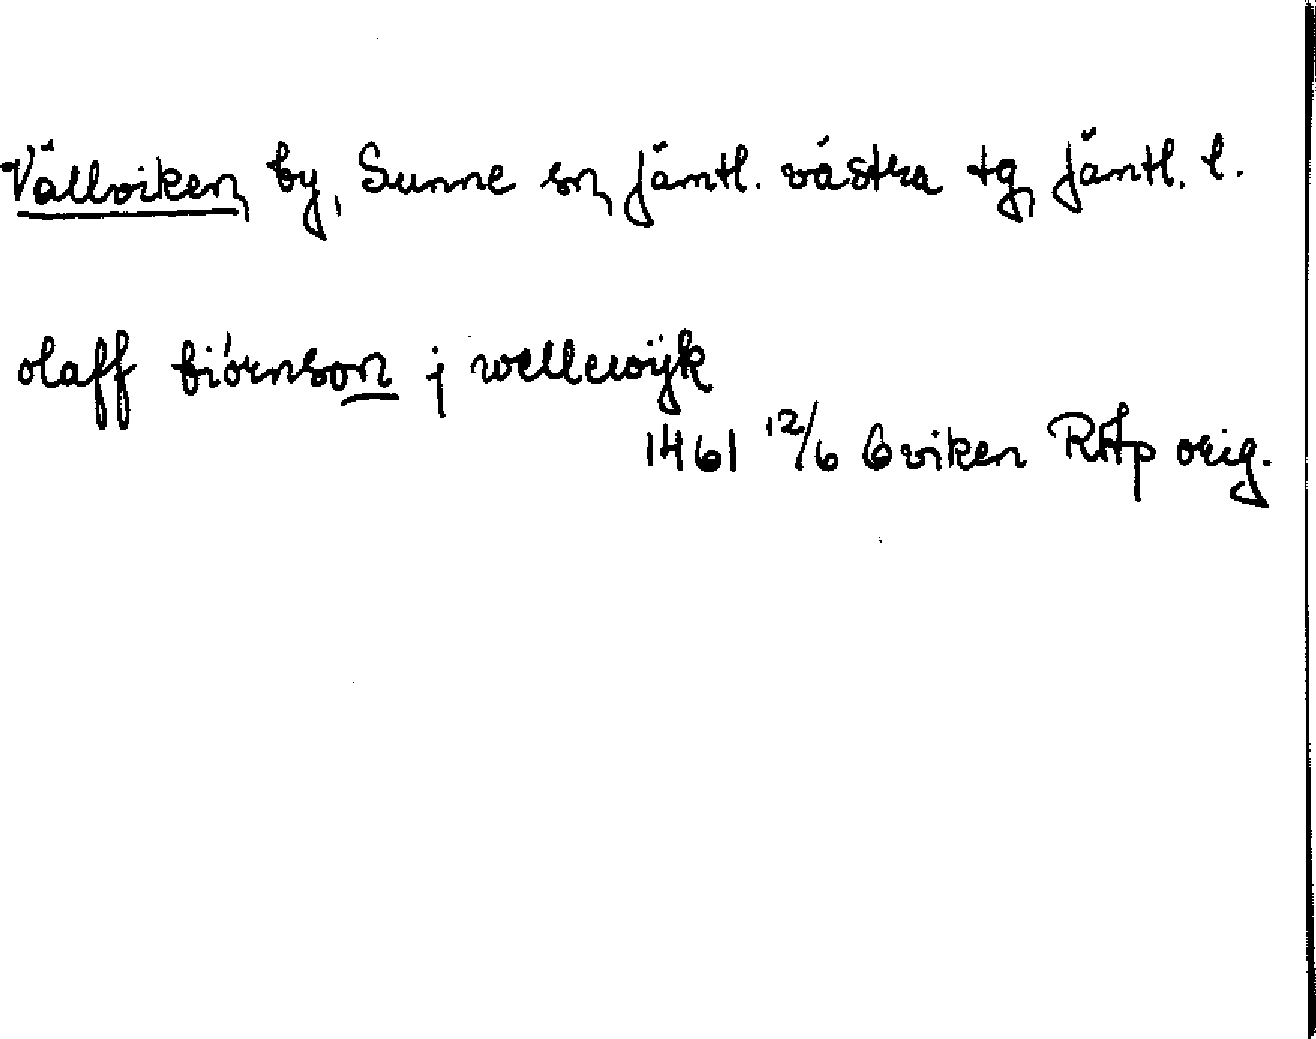 Vällviken, by, Sunne sn, Jämtl. västra tg, Jämtl. l.
olaff biórnson j wellewijk
1461 12/6 Oviken RAp orig.